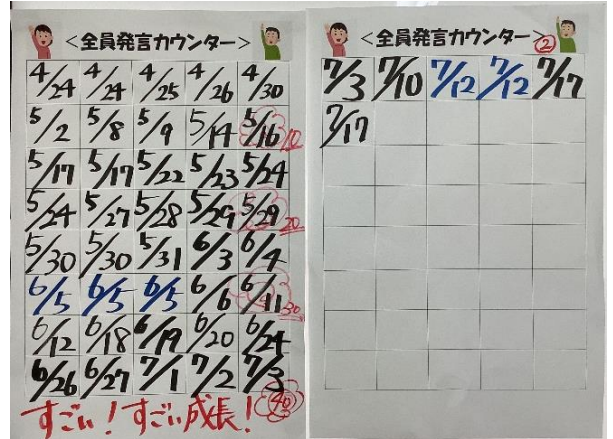 <全員発言カウンター>
4/24 4/24 4/25 4/26 4/30
5/2 5/8 5/9 5/14 5/16 10
5/17 5/17 5/22 5/23 5/24
5/24 5/27 5/28 5/29 5/29 20
5/30 5/30 5/31 6/3 6/4
6/5 6/5 6/5 6/6 6/11 30
6/12 6/18 6/19 6/20 6/24
6/26 6/27 7/1 7/2 7/3
すごい!すごい成長! 40
<全員発言カウンター> ②
7/3 7/10 7/12 7/12 7/17
7/17